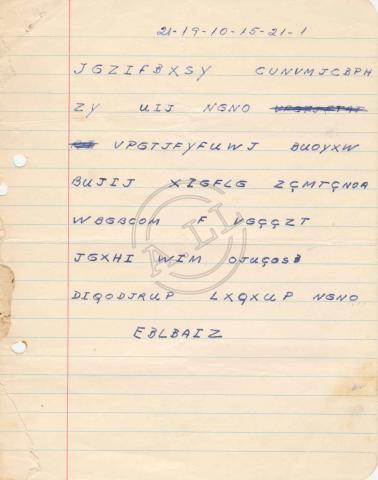 21-19-10-15-21-1
JGZIFBXSY CUNVMJCBPH
ZY UIJ NGNO
VPGTJFYFUWJ BUOYXW
BUJIJ XIGFLG ZÇMTÇNOA
WBGBCOM F VGÇÇZT
JGXHI WIM OJUÇOSB
DIQODJRUP LXQXUP NGNO
EBLBAIZ
A.LL